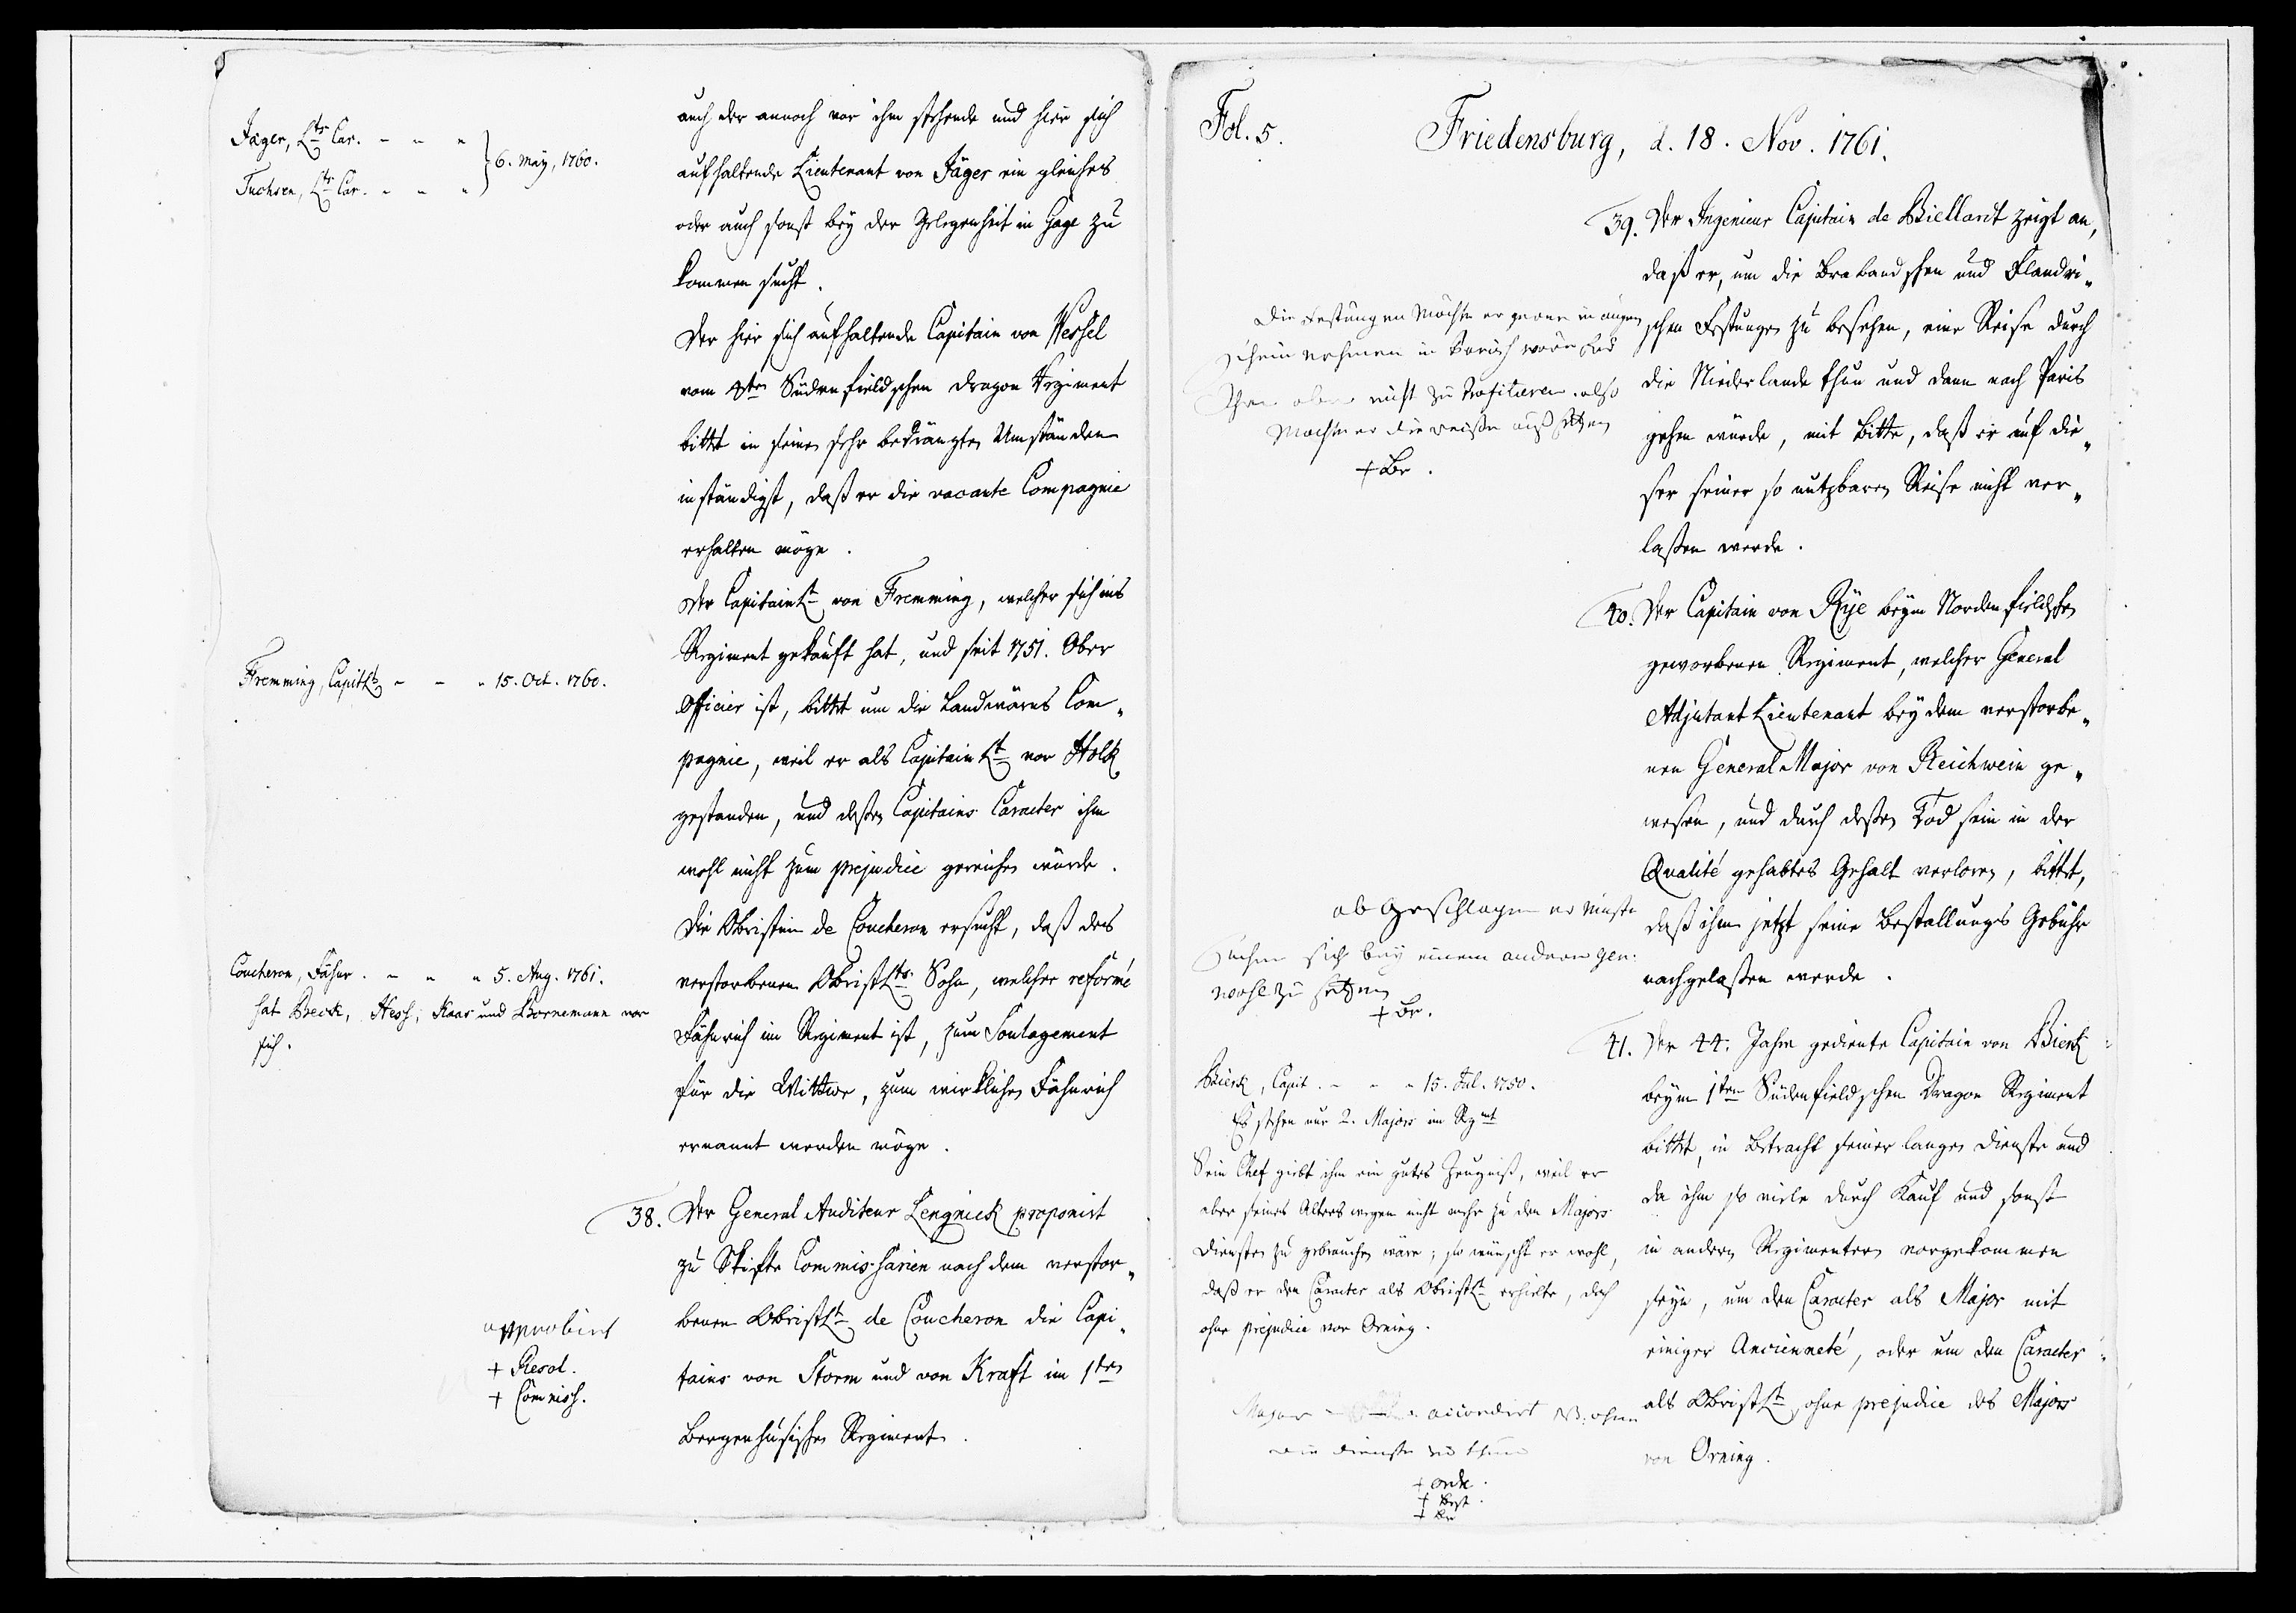 Jäger, Lts Car. - - "
6. May, 1760.
Tuchsen, Lts Car. - - "
auch der annoch vor ihm stehende und hier sich
aufhaltende Lieutenant von Jäger ein gleiches
oder auch sonst bey der Gelegenheit in Gage zu
kommen sucht.
Der hier sich aufhaltende Capitain von Wessel
vom Südenfieldschen Dragon Regiment
bittet in seinen sehr bedrängten Umständen
inständigst, daß er die vacante Compagnie
erhalten möge.
Fremming, CapitLt - - " 15. Oct. 1760.
Der CapitainLt von Fremming, welcher sich ins
Regiment gekauft hat, und seit 1751. Ober
Officier ist, bittet um die Landwärns Com„
pagnie, weil er als CapitainLt vor Holck
gestanden, und deßen Capitains Caracter ihm
wohl nicht zum prejudice gereichen würde.
Coucheron, Fähnr. - - " 5. Aug. 1761.
hat Beck, Hess, Kaas und Bornemann vor
sich.
Die Obristin de Coucheron ersucht, daß des
verstorbenen ObristLts Sohn, welcher reformé
Fähnrich im Regiment ist, zum Soulagement
für die Wittwe, zum wirklichen Fähnrich
ernannt werden möge.
38. Der General Auditeur Lengnick proponirt
zu Skifte Commissarien nach dem verstor„
benen ObristLt de Coucheron die Capi„
tains von Storm und von Kraft im 1ten
Bergenhusischen Regiment.
approbirt
+ Resol.
+ Commiss.
Fol. 5.
Friedensburg, d. 18. Nov. 1761.
39. Der Ingenieur Capitain de Biellart zeigt an,
daß er, um die Brabandschen und Flandri„
schen Festungen zu besehen, eine Reise durch
die Niederlande thun und dann nach Paris
gehen würde, mit Bitte, daß er auf die„
ser seiner so nutzbaren Reise nicht ver„
laßen werde.
Die Festungen möchte er gerne in augen
schein nehmen in Parisch wäre
aber nicht zu Profitieren. also
möchte er die reiße auß setzen
+ Br.
40. Der Capitain von Rye beym Nordenfieldschen
geworbenen Regiment, welcher General
Adjutant Lieutenant bey dem verstorbe„
nen General Major von Reichwein ge„
wesen, und durch deßen Tod sein in der
Qualité gehabtes Gehalt verloren, bittet,
daß ihm jetzt seine Bestallungs Gebühr
nachgelaßen werde.
ab geschlagen er müste
suchen sich bey einem andern Gen:
wohl zu setzen
+ Br.
41. Der 44. Jahre gediente Capitain von Bierk
beym 1ten Südenfieldschen Dragon Regiment
bittet, in Betracht seiner langen Dienste und
da ihm so viele durch Kauf und sonst
in andern Regimentern vorgekommen
seyn, um den Caracter als Major mit
einiger Ancienneté, oder um den Caracter
als ObristLt, ohne prejudice des Majors
von Orning.
Bierk, Capit. - - " 15. Jul. 1750.
Es stehen nur 2. Majors im Rgmt
Sein Chef giebt ihm ein gutes Zeugniß, weil er
aber seines Alters wegen nicht mehr zu den Majors
Diensten zu gebrauchen wäre; so wünscht er wohl,
daß er den Caracter als ObristLt erhielte, doch
ohne prejudice vor Orning.
Major accordirt NB. ohne
die dienste zu thun
+ ordr.
+ Best.
+ Br